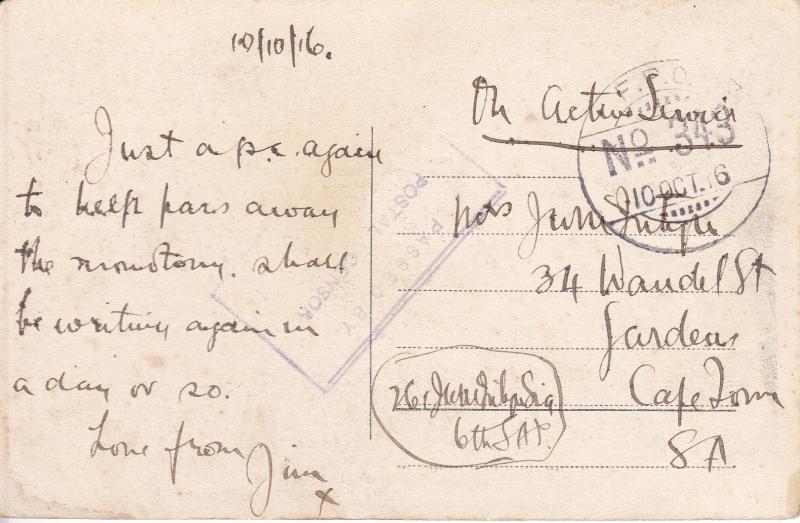 10/10/16.
Just a p.c. again
to help pass away
the monotony. shall
be writing again in
a day or so.
Love from
Jim
x
On Active Service
F.P.O.
No 343
10 OCT. 16
PASSED BY
POSTAL CENSOR
Mrs
34 Wandel St
Gardens
Cape Town
SA
6th SAI.